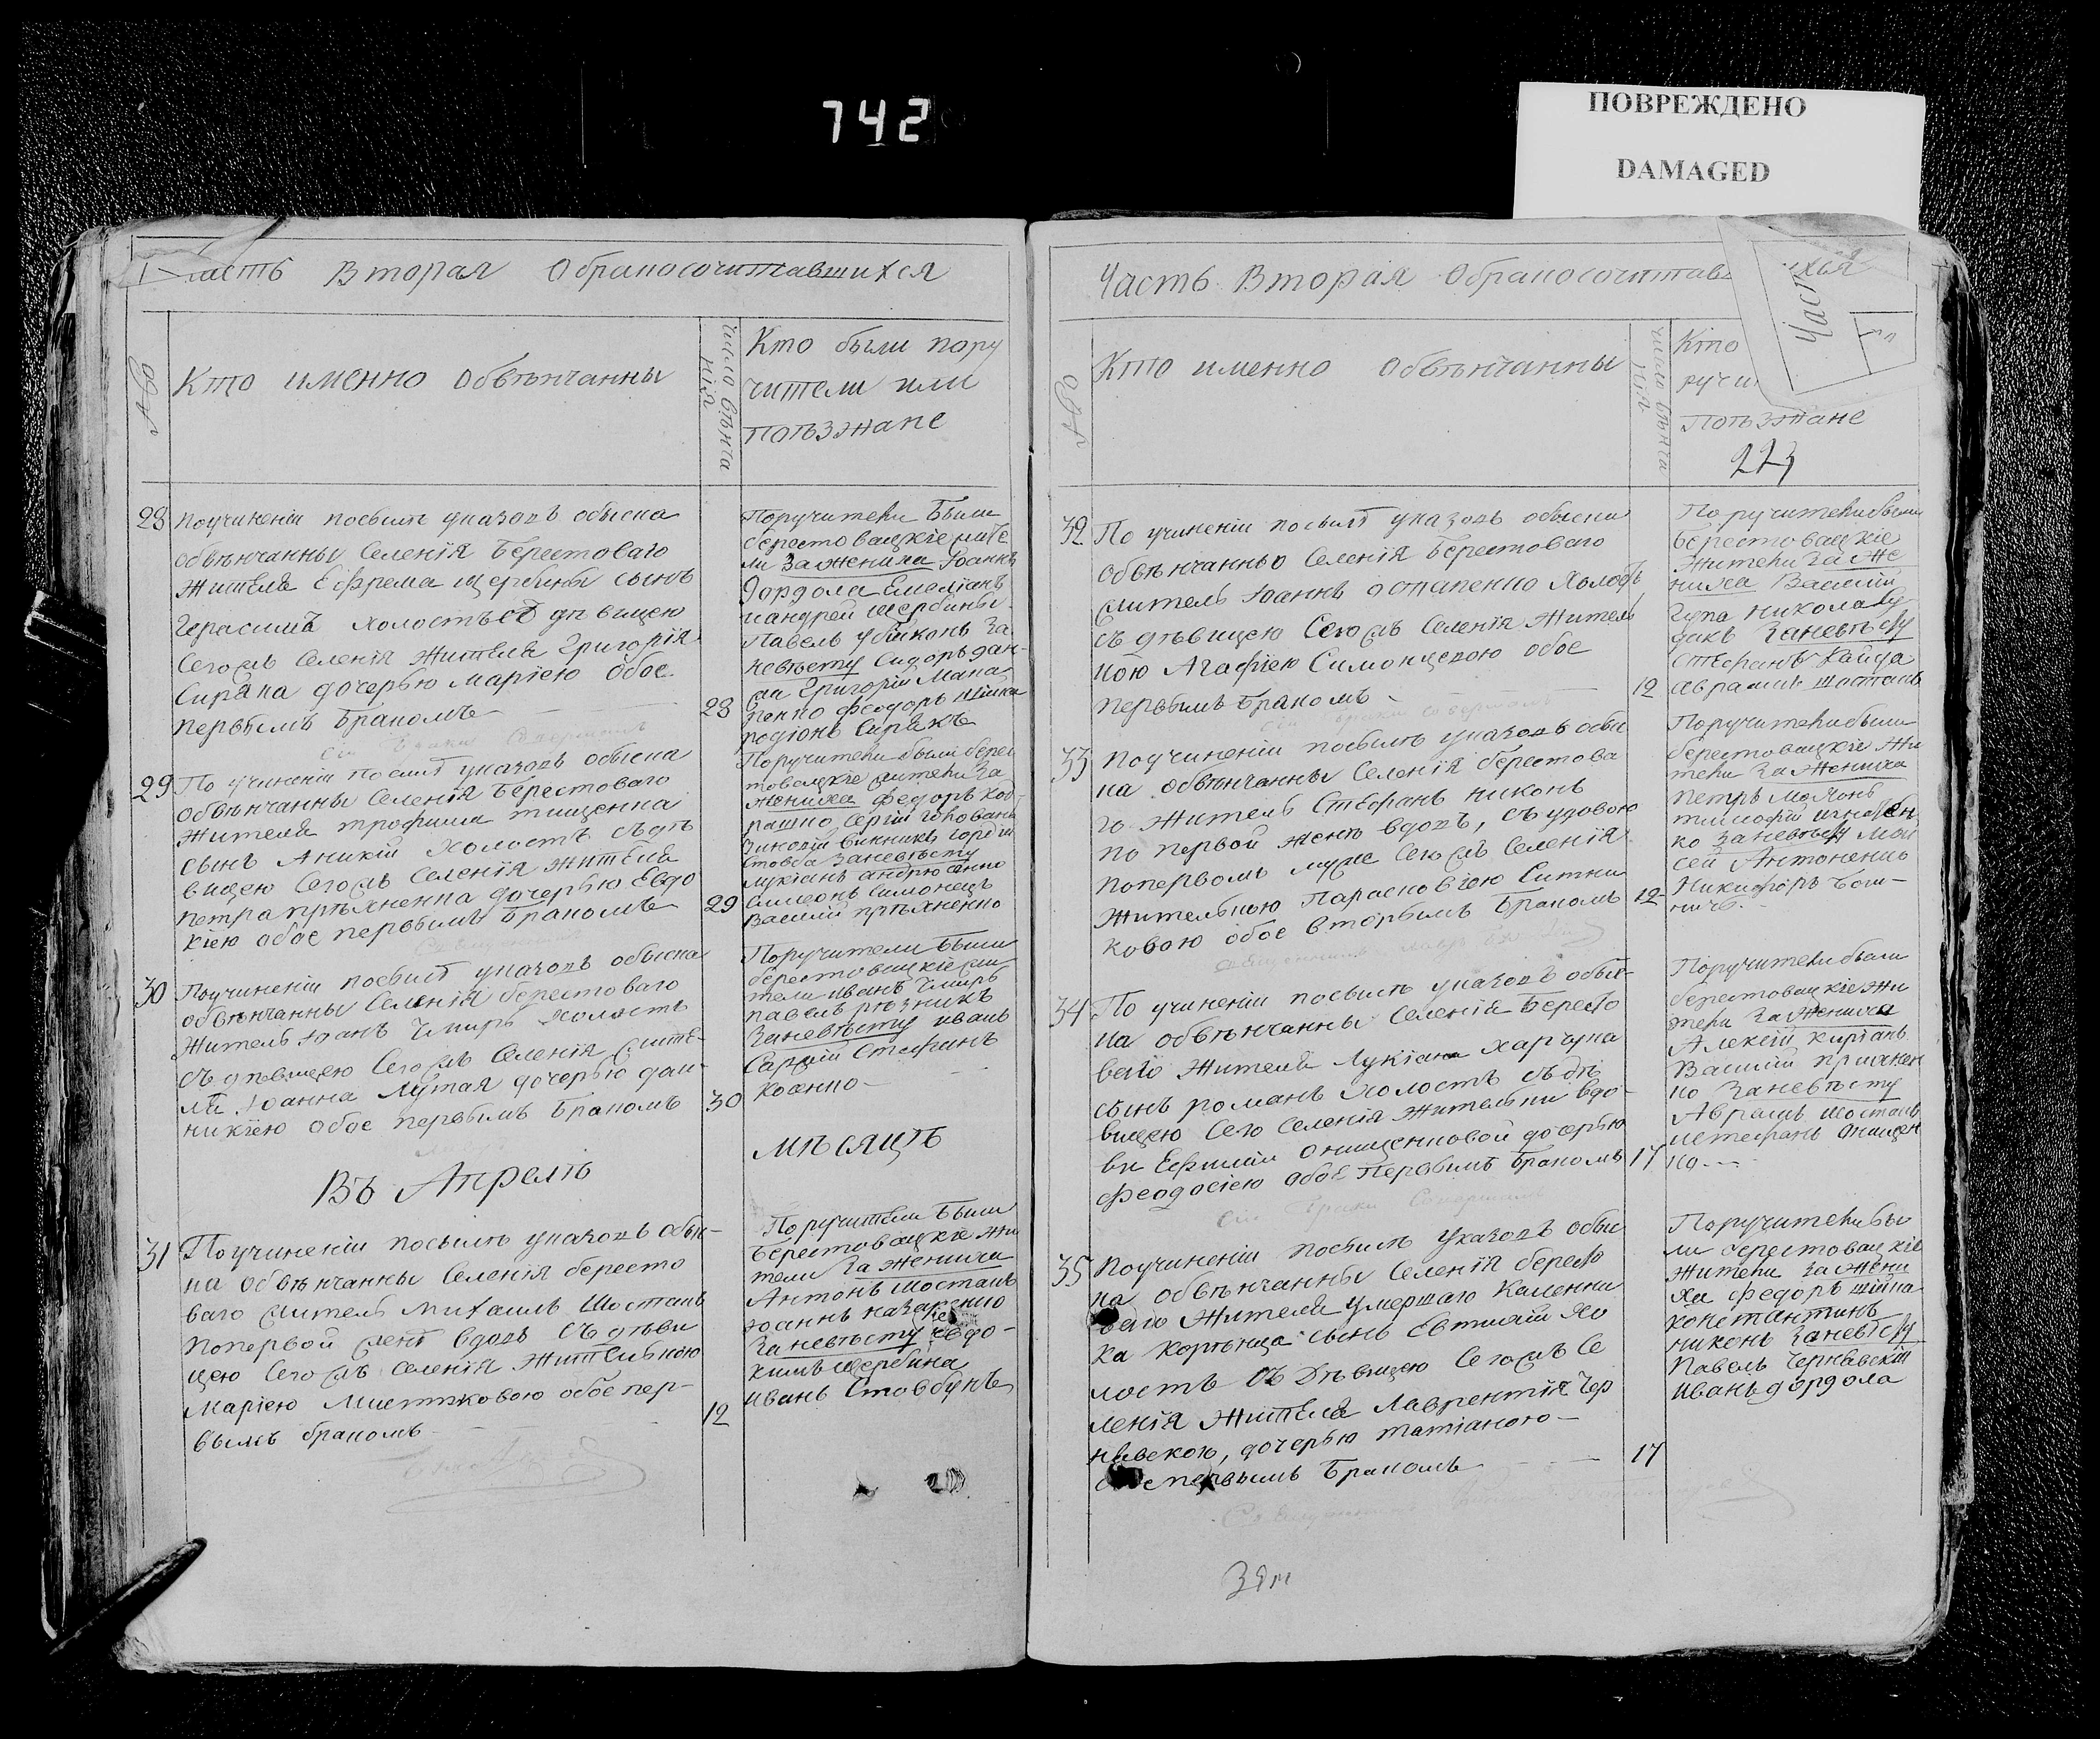 742
ПОВРЕЖДЕНО
DAMAGED
асть Вторая Обраносочитавшихся
№
Кто именно Обвѣнчанны
число вѣнча
нія
Кто были пору
чители или
поѣзжане
28
поучиненіи посвилт указовъ обыска
обвѣнчанны Селенія Берестоваго
Жителя Ефрема щербины сынъ
Герасимъ холостъ съ дѣвицею
Сегожъ Селенія Жителя Григорія
Сирака дочерью Маріею обое
первымъ Бракомъ
28
Поручители Были
берестовацкіе жите
ли Зажениха Іоаннъ
Дордола Емеліанъ
иандрей щербины
Павелъ убійконь За
невѣсту Сидоръ дан
Григорій Мана
пенко феодоръ шійка
родіонъ Сиракъ
29
По учиненіи посвилт указовъ обыска
обвѣнчанны Селенія Берестоваго
Жителя трофима тищенка
сынъ Аникій холостъ съдѣ
вицею Сегожъ Селенія жителя
петра прѣхненка дочерью Евдо
кіею обое первымъ Бракомъ
29
Поручители были берес
товацкіе жители За
жениха федоръ Ков
рашко Сергій Говоань
Зиновій винникъ Гордій
Стовба Заневѣсту
лукіанъ андрющенко
Симеонъ Симонецъ
Василій прѣхненко
30
Поучиненіи посвилт указовъ обыска
обвѣнчанны Селенія берестоваго
Житель Іоанъ Чмиръ холостъ
съ дѣвицею Сегожъ Селенія жите
ля Іоанна Лутая дочерью дом
никіею обое первымъ Бракомъ
30
Поручители Были
берестовацкіе жи
тели иванъ Чмиръ
павелъ рѣзникъ
Заневѣсту иванъ
Саржій Стефанъ
Коенко
Въ Апрелѣ
мѣсяцѣ
31
Поучиненіи посвилт указовъ обыс
ка обвѣнчанны Селенія бересто
ваго житель михаилъ Шостакъ
попервой женѣ вдовъ съ дѣви
цею Сегожъ Селенія жительною
Маріею Миетяковою обое пер
вымъ бракомъ
12
Поручители Были
Берестовацкіе жи
тели Зажениха
Антонъ шостакъ
Іоаннъ назаренко
Заневѣсту евдо
кимъ щербина
иванъ Стовбунъ
Часть Вторая Обраносочитав
ихся
Част
№
Кто именно Обвѣнчанны
число вѣнча
нія
Кто
ручи
Поѣзжане
223
32
По учиненіи посвилт указовъ обыска
обвѣнчанно Селенія Берестоваго
житель Іоаннъ остапенко Холостъ
съ дѣвицею Сегожъ Селенія житель
ною Агафіею Симонцевою обое
первымъ Бракомъ
12
Поручители были
берестовацкіе
Жители Заже
ниха Василій
Гупа николай
дакъ Заневѣсту
Стефанъ Кайда
Аврамъ шостакъ
33
Поучиненіи посвилт указовъ обыс
ка обвѣнчанны Селенія берестова
го житель Стефанъ никонь
по первой женѣ вдовъ, съ удовою
попервомъ мужѣ Сегожъ Селенія
жительною Парасковіею Ситни
ковою обое вторымъ Бракомъ
12
Поручители были
берестовацкіе жи
тели Зажениха
петръ мотонь
тимофій игнатен
ко Заневѣсту мой
сей Антоненко
Никифоръ Бон
ничь
34
По учиненіи посвилт указовъ обыс
ка обвѣнчанны Селенія Бересто
ваго Жителя Лукіана харчука
сынъ романъ холостъ съ дѣ
вицею Сего Селенія жительки вдо
вы Ефиміи онищенковой дочерью
феодосіею обое первымъ бракомъ
17
Поручители были
берестовацкіе жи
тели Зажениха
Алексій киріанъ
Василій прихнен
ко Заневѣсту
Аврамъ шостакъ
истефанъ онищен
ко
35
Поучиненіи посвилт указовъ обыс
ка обвѣнчанны Селенія бересто
ваго Жителя умершаго Калинни
ка Корѣнца сынъ Евтихій хо
лостъ съ Дѣвицею Сегожъ Се
ленія Жителя Лаврентія Чер
нявскою, дочерью татіаною
обое первымъ Бракомъ
17
Поручители бы
ли берестовацкіе
Жители Зажени
ха федоръ шійка
константинъ
никонь Заневѣсту
Павелъ Чернявскій
иванъ дордола